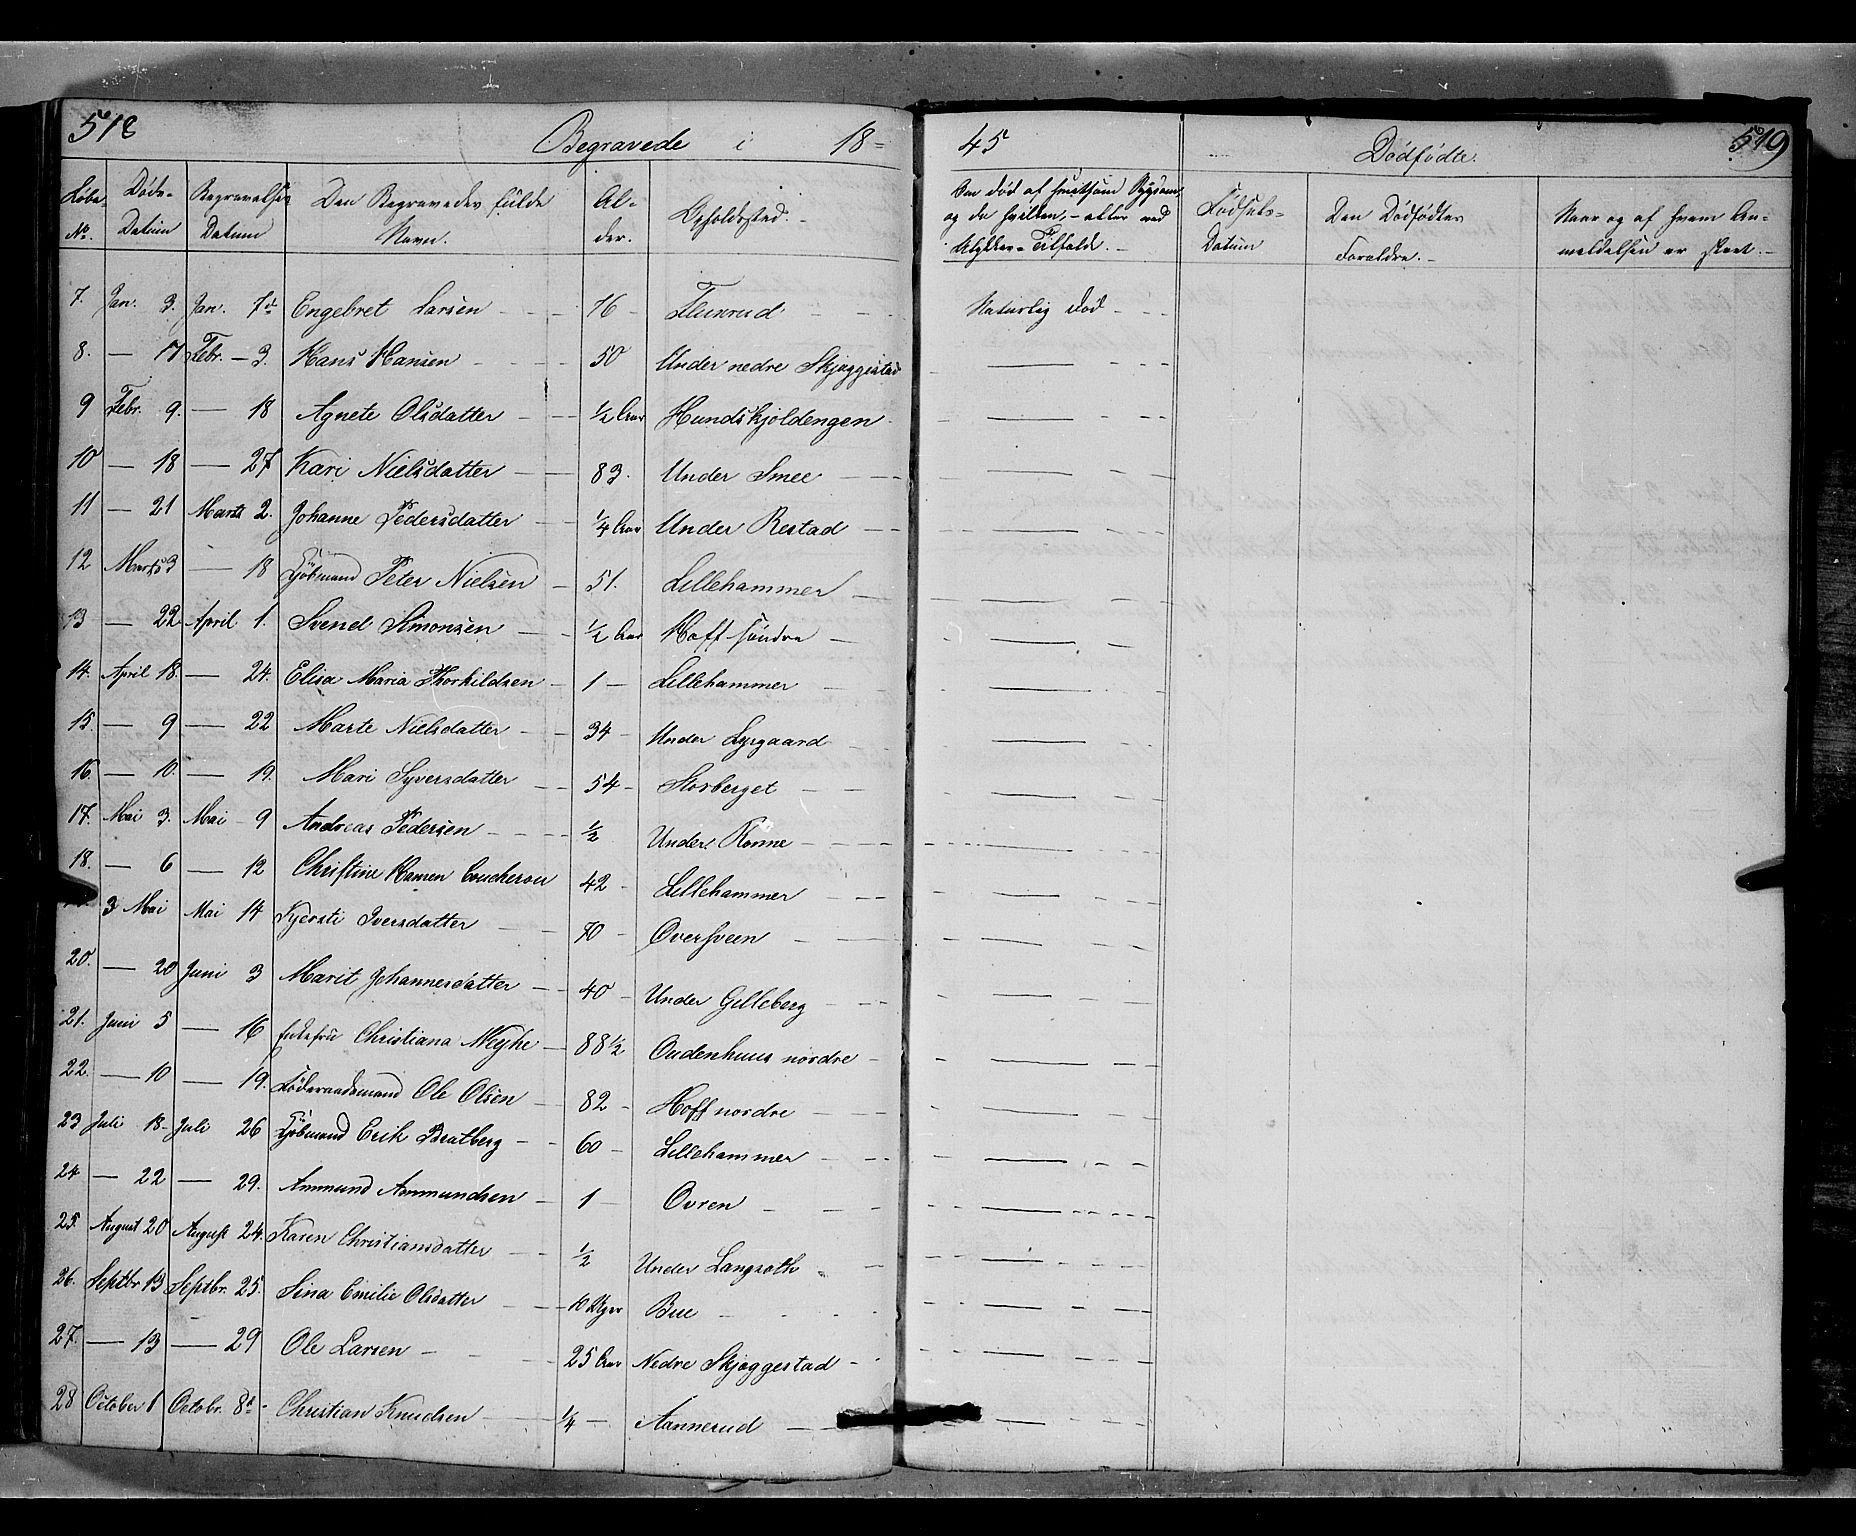 518
Begravede i 18-
45
Dødfødte.
519
Løbe No.
Døds-Datum
Begravelses Datum
Den Begravedes fulde Navn.
Al-der.
Opholdssted.-
Om død af smitsom Sygdom, og da hvilken, - eller ved Ulykkes-Tilfælde.-
Fødsels-Datum
Den Dødfødtes Forældre.-
Naar og af hvem An-meldelsen er skeet.-
7. Jan. 3. Jan. 7d Engebret Larsen 76 - Flunrud - Naturlig død
8. — 17 Febr. - 3. Hans Hansen 50 Under nedre Skjæggestad —
9 Febr. 9. — 18 Agnete Olsdatter ½ Aar Hundskjoldengen —
10 — 18 — 27 Kari Nielsdatter 83. Under Smee —
11 — 21 Marts 2. Johanne Pedersdatter ¼ Aar Under Restad —
12 Marts 3 — 18 Kjøbmand Peter Nielsen 51. Lillehammer —
13 — 22 April 1. Svend Simonsen ½ Aar Hoff søndre —
14. April 18. — 24. Elisa Maria Thorkildsen 1 - Lillehammer —
15. — 9 — 22 Marte Nielsdatter 34 - Under Lysgaard —
16. — 10. — 19. Mari Syversdatter 54 - Storberget —
17. Mai 3. Mai - 9 Andreas Pedersen ½ Under Ronne —
18. — 6 — 12 Christine Hansen Coucheron 42 - Lillehammer —
3 Mai Mai 14 Kjersti Iversdatter 70 - Oversveen —
20. — 20 Juni 3 Marit Johannesdatter 40 - Under Gilleberg —
21. Juni 5 — 16 Enkefru Christiana Meyhe 88½ Oudenhuus nordre —
22. — 10 — 19. Føderaadsmand Ole Olsen 82 - Hoff nordre —
23 Juli 18 - Juli 26 Kjøbmand Erik Bratberg 60 - Lillehammer —
24 — 22 — 29. Ammund Ammundsen 1 Ovren —
25. August 20 August 24. Karen Christiansdatter ½ Under Langsæth —
26. Septbr. 13 Septbr. 25. Sina Emilie Olsdatter 10 Uger Bue —
27. — 13 — 29 Ole Larsen 25 Aar Nedre Skjæggestad —
28 October 1 Octobr. 8d Christian Knudsen ¼ - Aannerud —